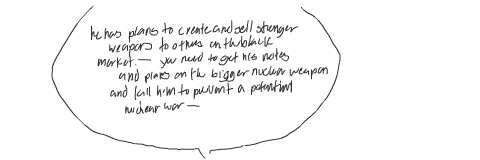 he has plans to create and sell stronger
weapons to others on the black
market. — you need to get his notes
and plans on the bigger nuclear weapon
and kill him to prevent a potential
nuclear war —